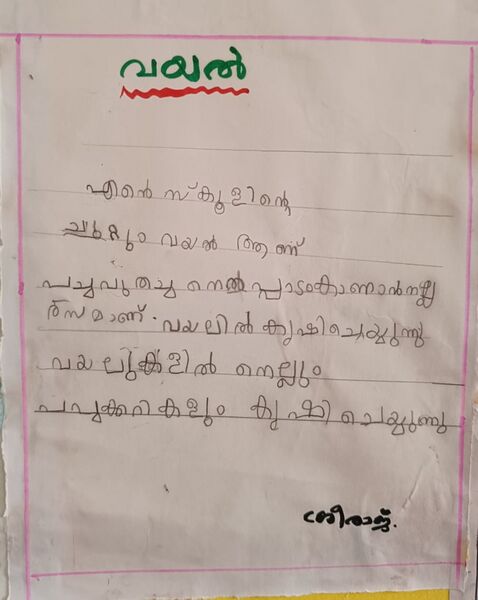 വയൽ
എൻെ സ്കൂളിൻ്റെ
ചുറ്റും വയൽ ആണ്
പച്ചവുതച്ച നെൽ പ്പാടംകാണാൻനല്ല
രസമാണ്. വയലിൽ കൃഷിചെയ്യുന്നു
വയലുകളിൽ നെല്ലും
പച്ചക്കറികളും കൃഷി ചെയ്യുന്നു
ശ്രീരാജ്.